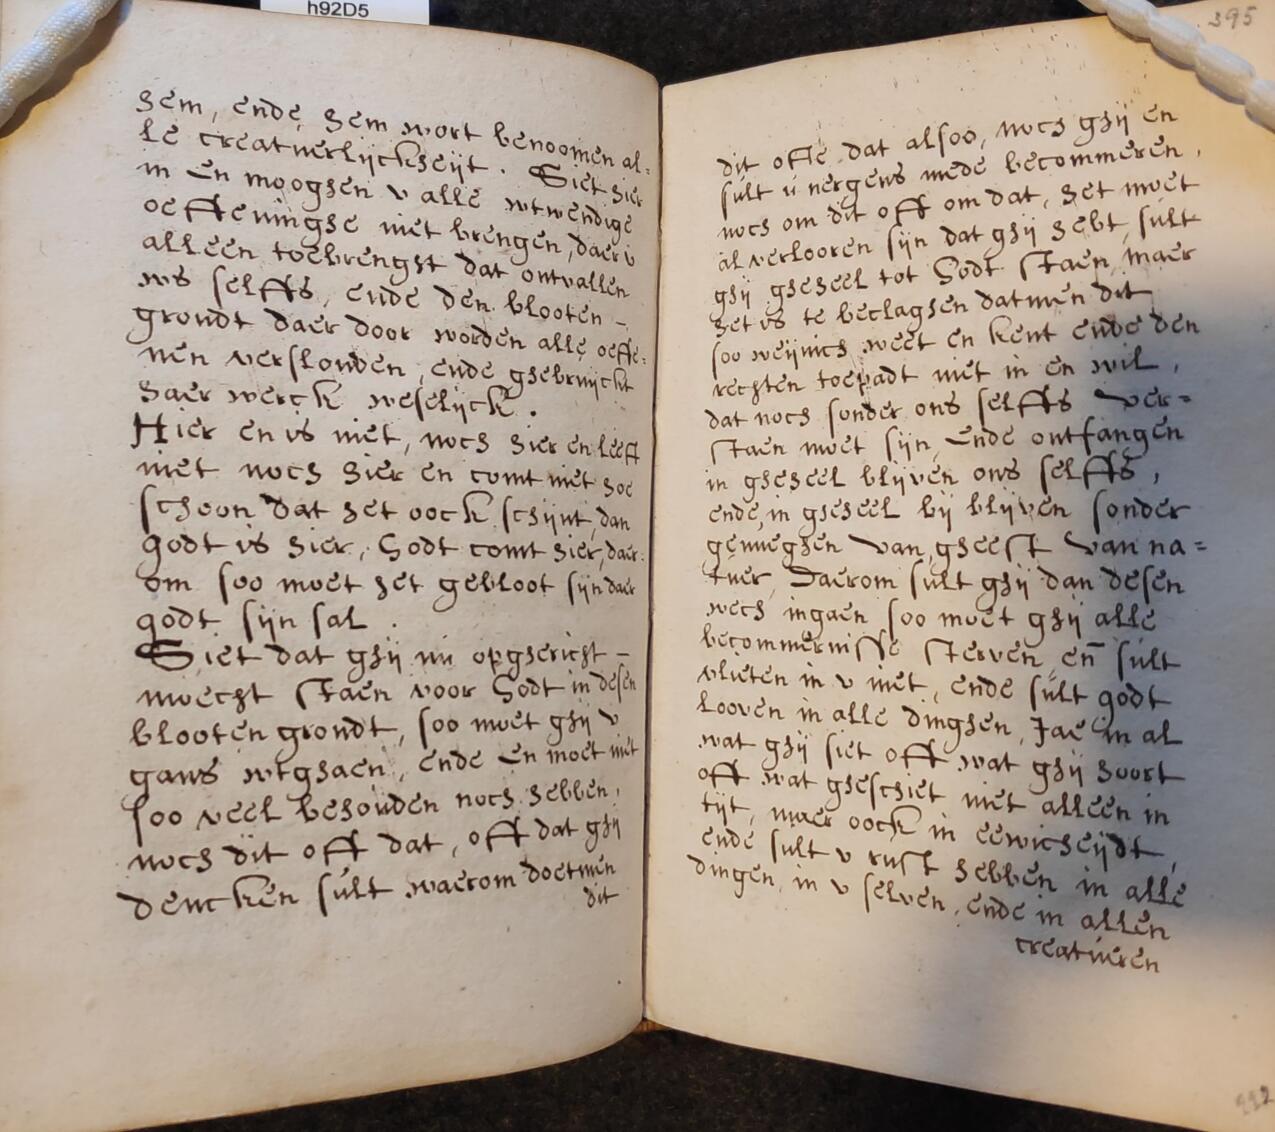 h92D5
hem, ende hem wort benoomen al=
le creatuerlijckheijt. Siet hier
in en mooghen v alle wtwendige
oeffeninghe niet brengen, daer v
alleen toebrenght dat ontvallen
ws selffs, ende den blooten -
grondt daer door worden alle oeffe:
nen verslonden, ende ghebruijckt
haer werck weselijck.
Hier en is niet, noch hier en leeft
niet noch hier en comt niet hoe
schoon dat het oock schijnt, dan
godt is hier, Godt comt hier, daer:
om soo moet het gebloot sijn daer
godt sijn sal.
Siet dat ghij nu opghericht -
moecht staen voor Godt in desen
blooten grondt, soo moet ghij v
gans wtghaen, ende en moet niet
soo veel behouden noch hebben,
noch dit oft dat, oft dat ghij
dencken sult waerom doetmen
dit
395
dit offe dat alsoo, noch ghij en
sult u nergens mede becommeren,
noch om dit oft om dat, het moet
al verlooren sijn dat ghij hebt, sult
ghij gheheel tot Godt staen, maer
het is te beclaghen datmen dit
soo weijnich weet en kent ende den
rechten toepadt niet in en wil,
dat noch sonder ons selffs ver=
staen moet sijn, ende ontfangen
in gheheel blijven ons selffs,
ende in gheheel bij blijven sonder
genueghen van gheest van na=
tuer, Daerom sult ghij dan desen
wech ingaen soo moet ghij alle
becommernisse sterven en̄ sult
vlieten in v niet, ende sult godt
looven in alle dinghen, Jae in al
wat ghij siet oft wat ghij hoort
oft wat gheschiet niet alleen in
tijt, maer oock in eewicheijdt,
ende sult v rust hebben in alle
dingen, in v selven, ende in allen
creatueren